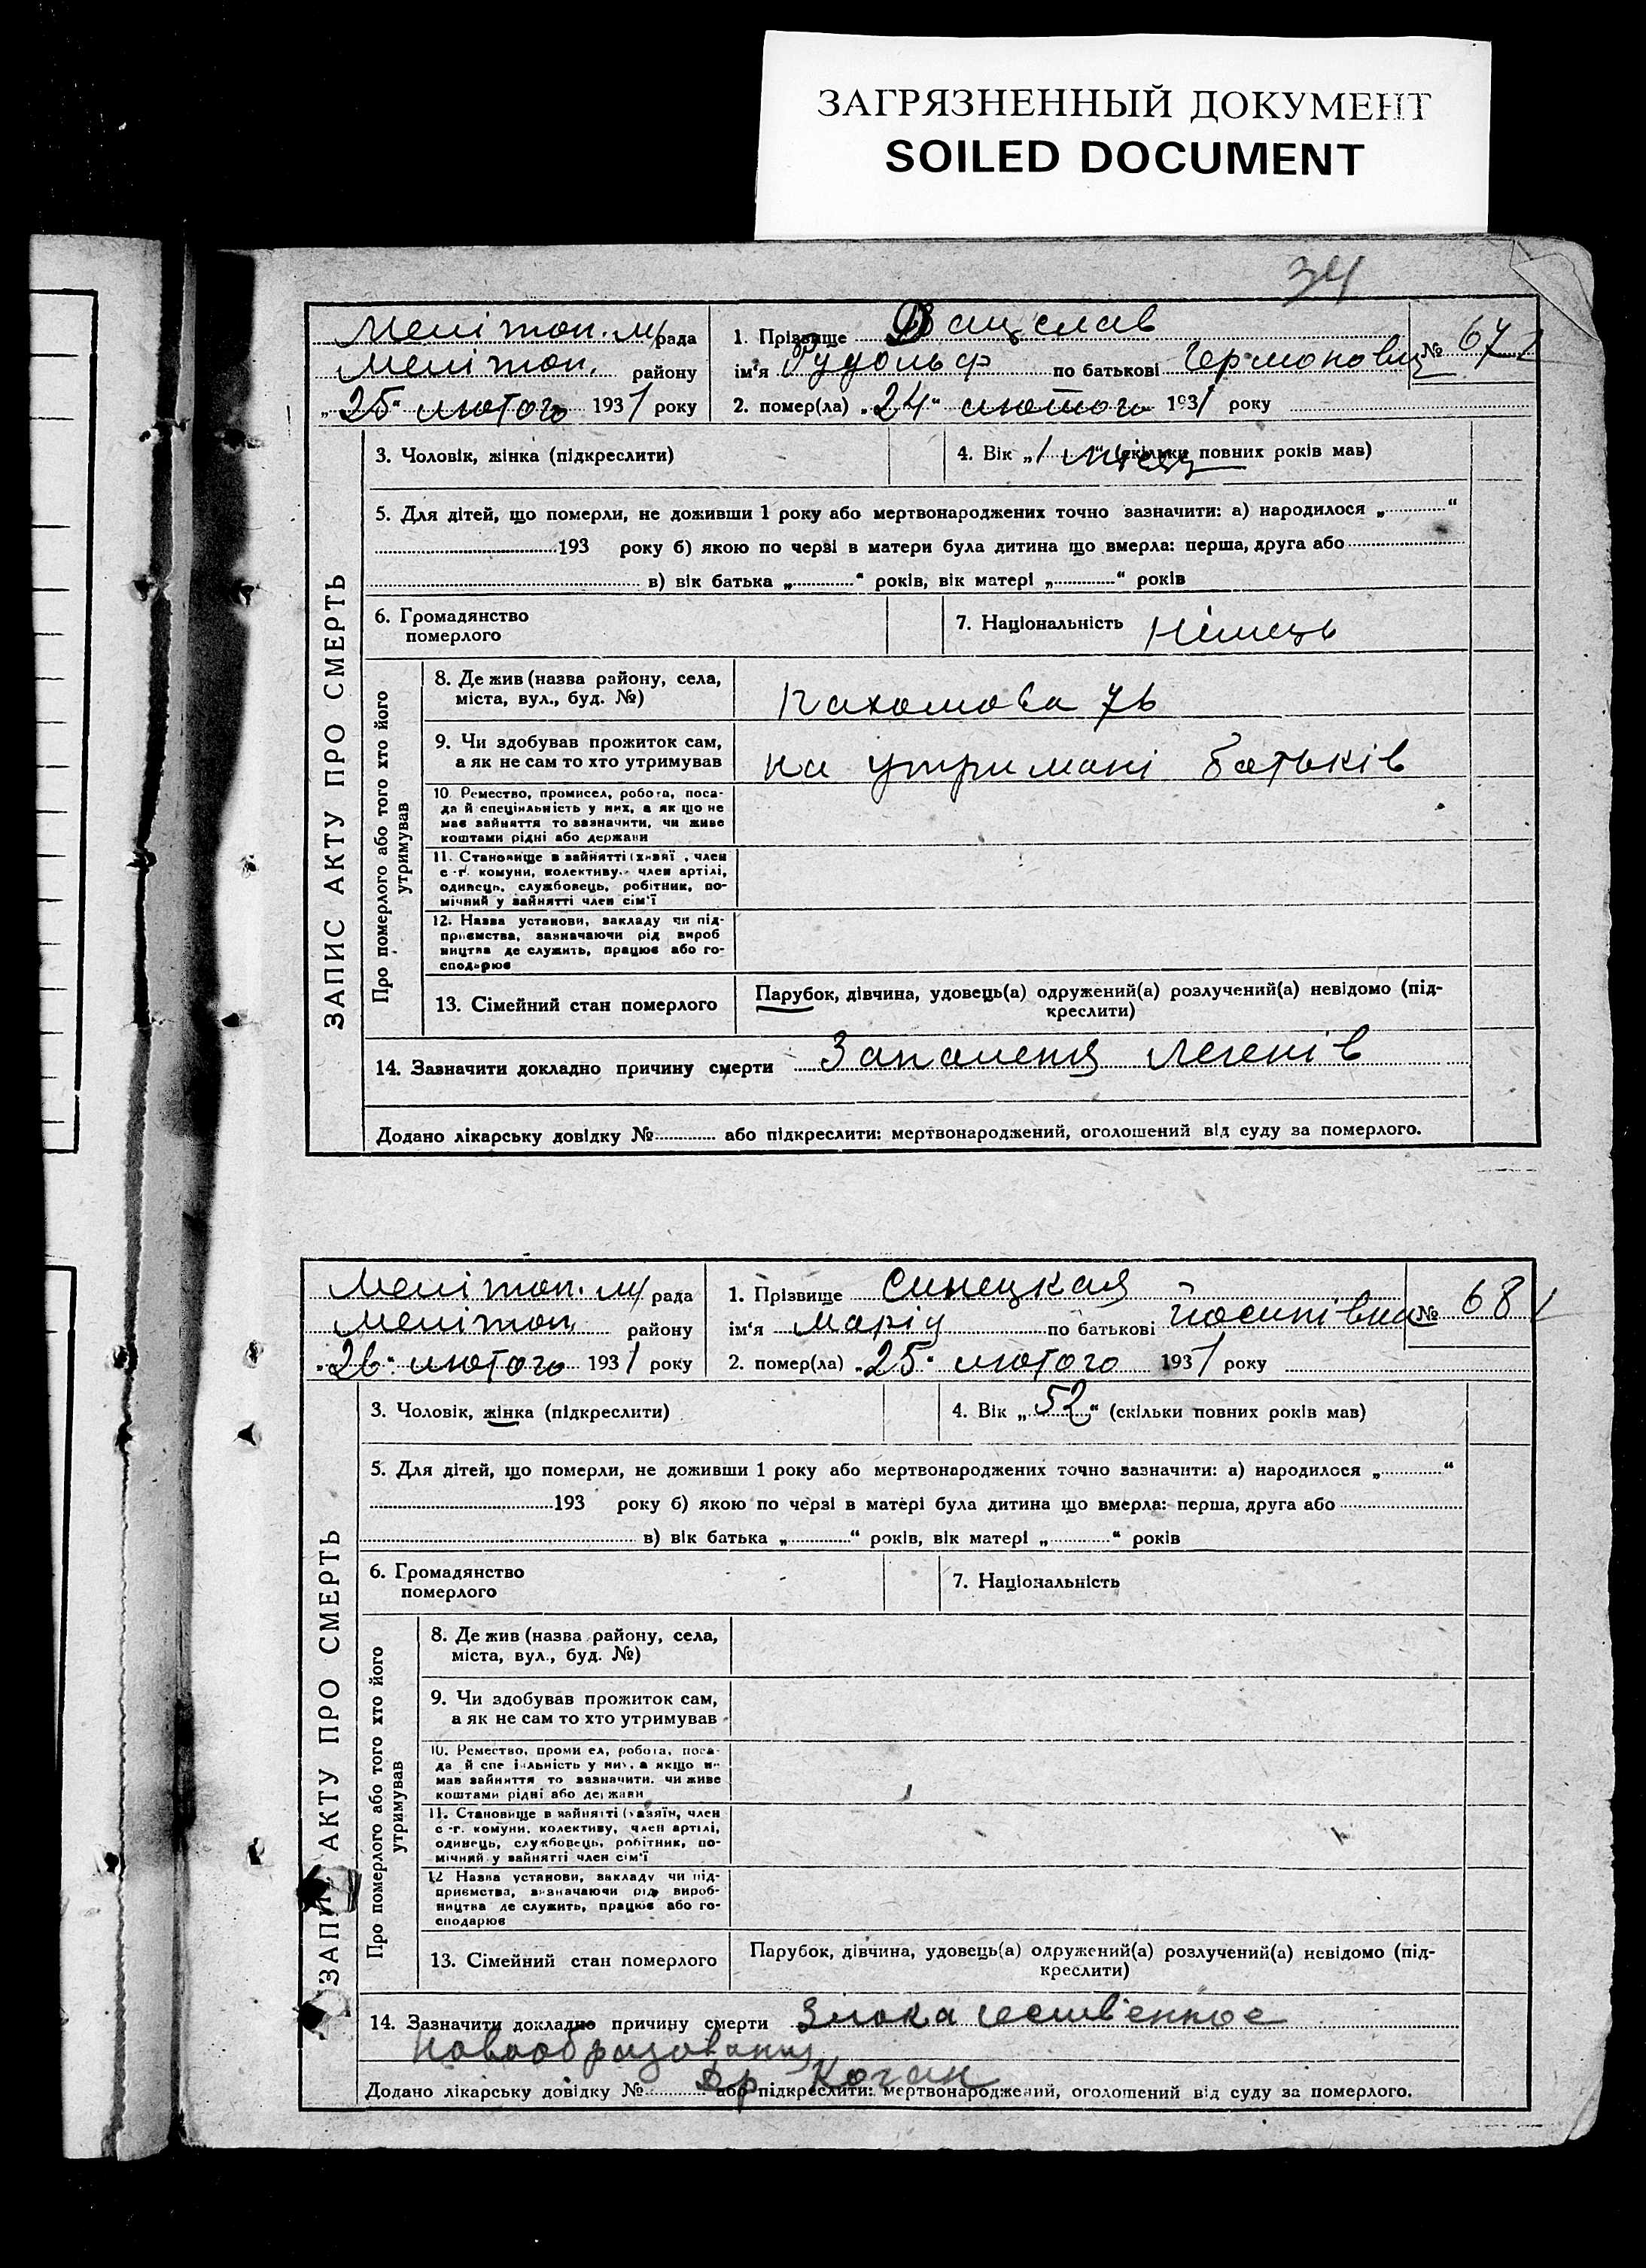 ЗАГРЯЗНЕННЫЙ ДОКУМЕНТ
SOILED DOCUMENT
34
ЗАПИС АКТУ ПРО СМЕРТЬ
Меліtоп. м/рада
Меліtоп. району
„25“ лютого 1931 року
1. Прізвище Вацслав
ім'я Рудольф по батькові Германович
№ 67
2. помер(ла) „24“ лютого 1931 року
3. Чоловік, жінка (підкреслити)
4. Вік „1 місяц“ (скільки повних років мав)
5. Для дітей, що померли, не доживши 1 року або мертвонароджених точно зазначити: а) народилося „............“
193 року б) якою по черзі в матери була дитина що вмерла: перша, друга або
в) вік батька „............“ років, вік матері „............“ років
6. Громадянство
померлого
7. Національність Німець
Про померлого або того хто його
утримував
8. Де жив (назва району, села,
міста, вул., буд. №)
Пахомова 76
9. Чи здобував прожиток сам,
а як не сам то хто утримував
на утримані батьків
10. Ремество, промисел, робота, поса-
да й спеціяльність у них, а як що не
має зайняття то зазначити, чи живе
коштами рідні або держави
11. Становище в зайнятті (хазяї , член
с-г. комуни, колективу, член артілі,
одинець, службовець, робітник, по-
мічний у зайнятті член сім'ї
12. Назва установи, закладу чи під-
приємства, зазначаючи рід вироб
ництва де служить, працює або го-
сподарює
13. Сімейний стан померлого
Парубок, дівчина, удовець(а) одружений(а) розлучений(а) невідомо (під-
креслити)
14. Зазначити докладно причину смерти Запаленя легенів
Додано лікарську довідку №............ або підкреслити: мертвонароджений, оголошений від суду за померлого.
ЗАПИС АКТУ ПРО СМЕРТЬ
Меліtоп. м/рада
Меліtоп. району
„26“ лютого 1931 року
1. Прізвище Синецкая
ім'я Марія по батькові Йосипівна
№ 68
2. помер(ла) „25“ лютого 1931 року
3. Чоловік, жінка (підкреслити)
4. Вік „52“ (скільки повних років мав)
5. Для дітей, що померли, не доживши 1 року або мертвонароджених точно зазначити: а) народилося „............“
193 року б) якою по черзі в матері була дитина що вмерла: перша, друга або
в) вік батька „............“ років, вік матері „............“ років
6. Громадянство
померлого
7. Національність
Про померлого або того хто його
утримував
8. Де жив (назва району, села,
міста, вул., буд. №)
9. Чи здобував прожиток сам,
а як не сам то хто утримував
10. Ремество, проми ел, робота, поса-
да й спе іяльність у них, а якщо не
мав зайняття то зазначити, чи живе
коштами рідні або держави
11. Становище в зайнятті (хазяїн, член
с-г. комуни, колективу, член артілі,
одинець, службовець, робітник, по-
мічний у зайнятті член сім'ї
12 Назва установи, закладу чи під-
приємства, зазначаючи рід вироб-
ництва де служить, працює або го-
сподарює
13. Сімейний стан померлого
Парубок, дівчина, удовець(а) одружений(а) розлучений(а) невідомо (під-
креслити)
14. Зазначити докладно причину смерти Злокачественное
новообразования
др Коган
Додано лікарську довідку №............ або підкреслити: мертвонароджений, оголошений від суду за померлого.